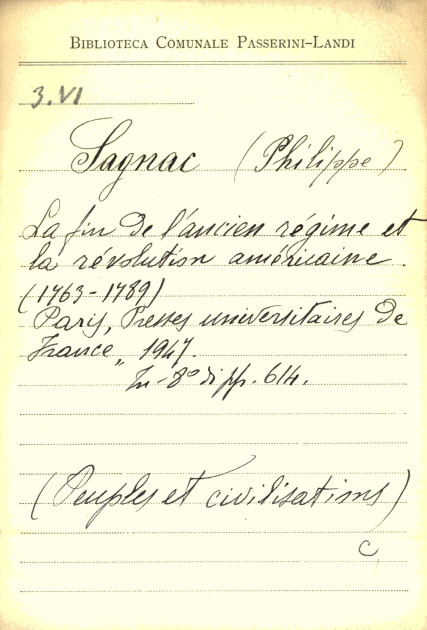 BIBLIOTECA COMUNALE PASSERINI-LANDI
3.VI
Sagnac (Philippe)
La fin de l'ancien régime et
la révolution américaine.
(1763-1789)
Paris, Presses universitaires de
France, 1947.
In-8° di pp. 614.
(Peuples et civilisations)
C